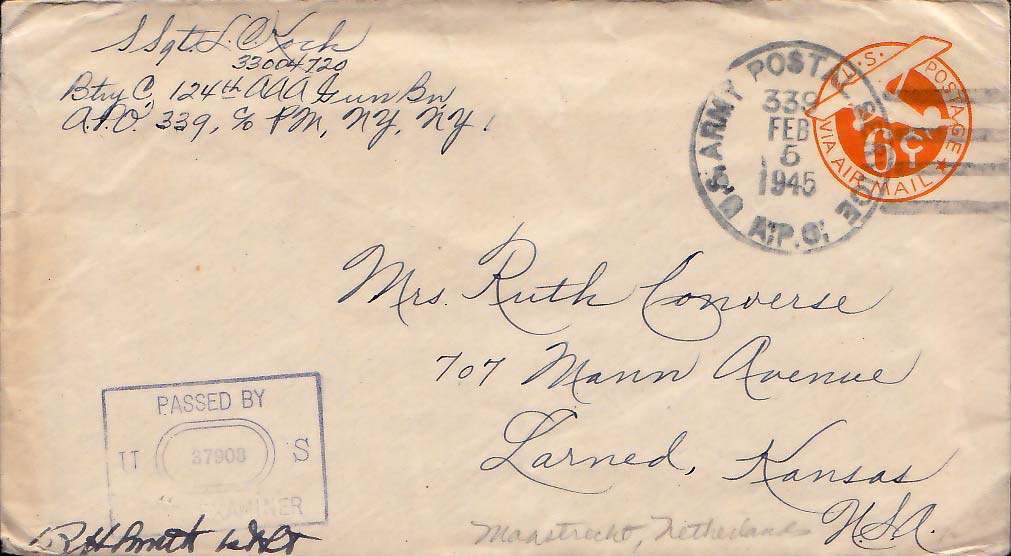 S Sgt L. C. Koch
33004720
Btry C, 124th AAA Gun Bn
A.P.O. 339, c/o PM, NY, NY.
U.S. ARMY POSTAL
339
FEB
5
1945
A.P.O.
U.S. POSTAGE
6¢
VIA AIR MAIL
Mrs. Ruth Converse
707 Mann Avenue
Larned, Kansas
U.S.A.
PASSED BY
U 37908 S
EXAMINER
1st Lt
Maastrecht, Netherlands